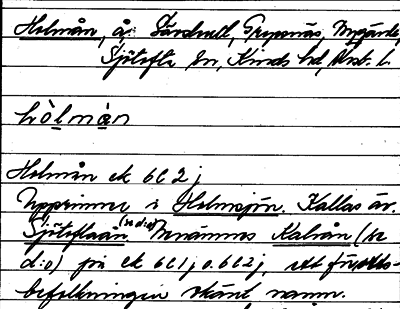 Holmån, å: Länghult, Grytsnäs, Mygärde,
Sjötofta sn, Kinds hd, Vnst. l.
hòlmån
Holmån ek 6C2j
Upprinner i Holmsjön. Kallas äv.
Sjötoftaån (se d:o) Benämnes Kalvån (se
d:o) på ek 6C1j o. 6C2j, ett för orts-
befolkningen okänt namn.